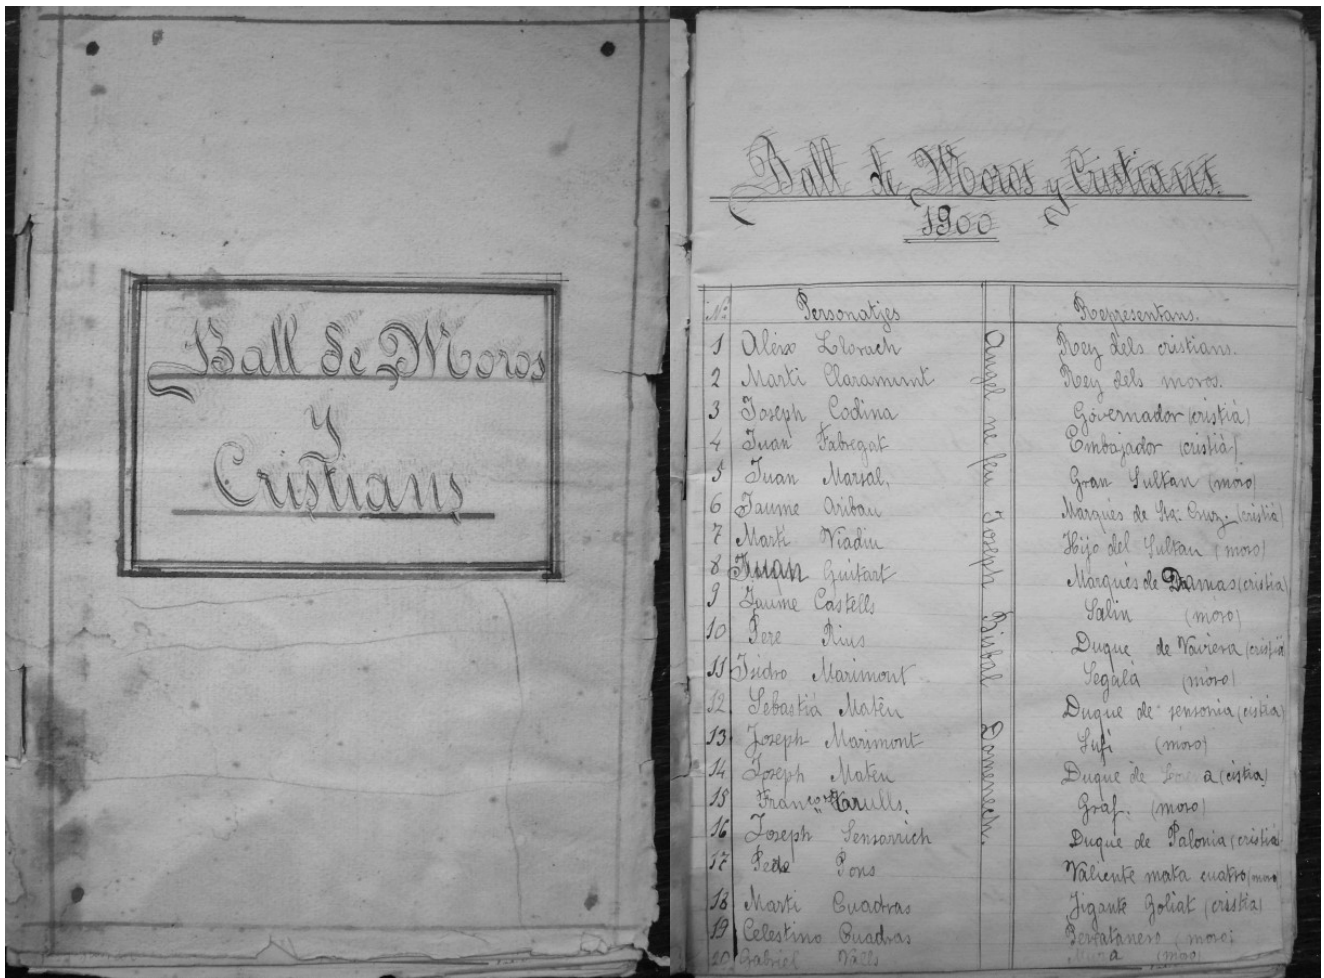 Ball de Moros
y
Cristians
Ball de Moros y Cristians.
1900
Nº Personatjes Representans.
1 Aleix Llorach Rey dels cristians.
2 Marti Claramunt Rey dels moros.
3 Joseph Codina Governador (cristià)
4 Juan Fabregat Embajador (cristià)
5 Juan Marsal, Gran Sultan (moro)
6 Jaume Aribau Marqués de Sta. Cruz. (cristià)
7 Marti Viadiu Hijo del Sultan (moro)
8 Juan Guitart Marqués de Damas (cristia)
9 Jaume Castells Salin (moro)
10 Pere Rius Duque de (cristià)
11 Isidro Marimont Segalà (moro)
12 Sebastià Matéu Duque de sensonia (cistia)
13 Joseph Marimont Sufi (moro)
14 Joseph Mateu Duque de (cistia)
15 Franco Carulls. Graf. (moro)
16 Joseph Sensarrich Duque de Palonia (cristià)
17 Pons Valiente mata cuatro (moro)
18 Marti Cuadras Jigante Goliat (cristià)
19 Celestino Cuadras (moro)
20 Gabriel Valls (moro)
Angel ne feu Joseph Bisbal Domenech.